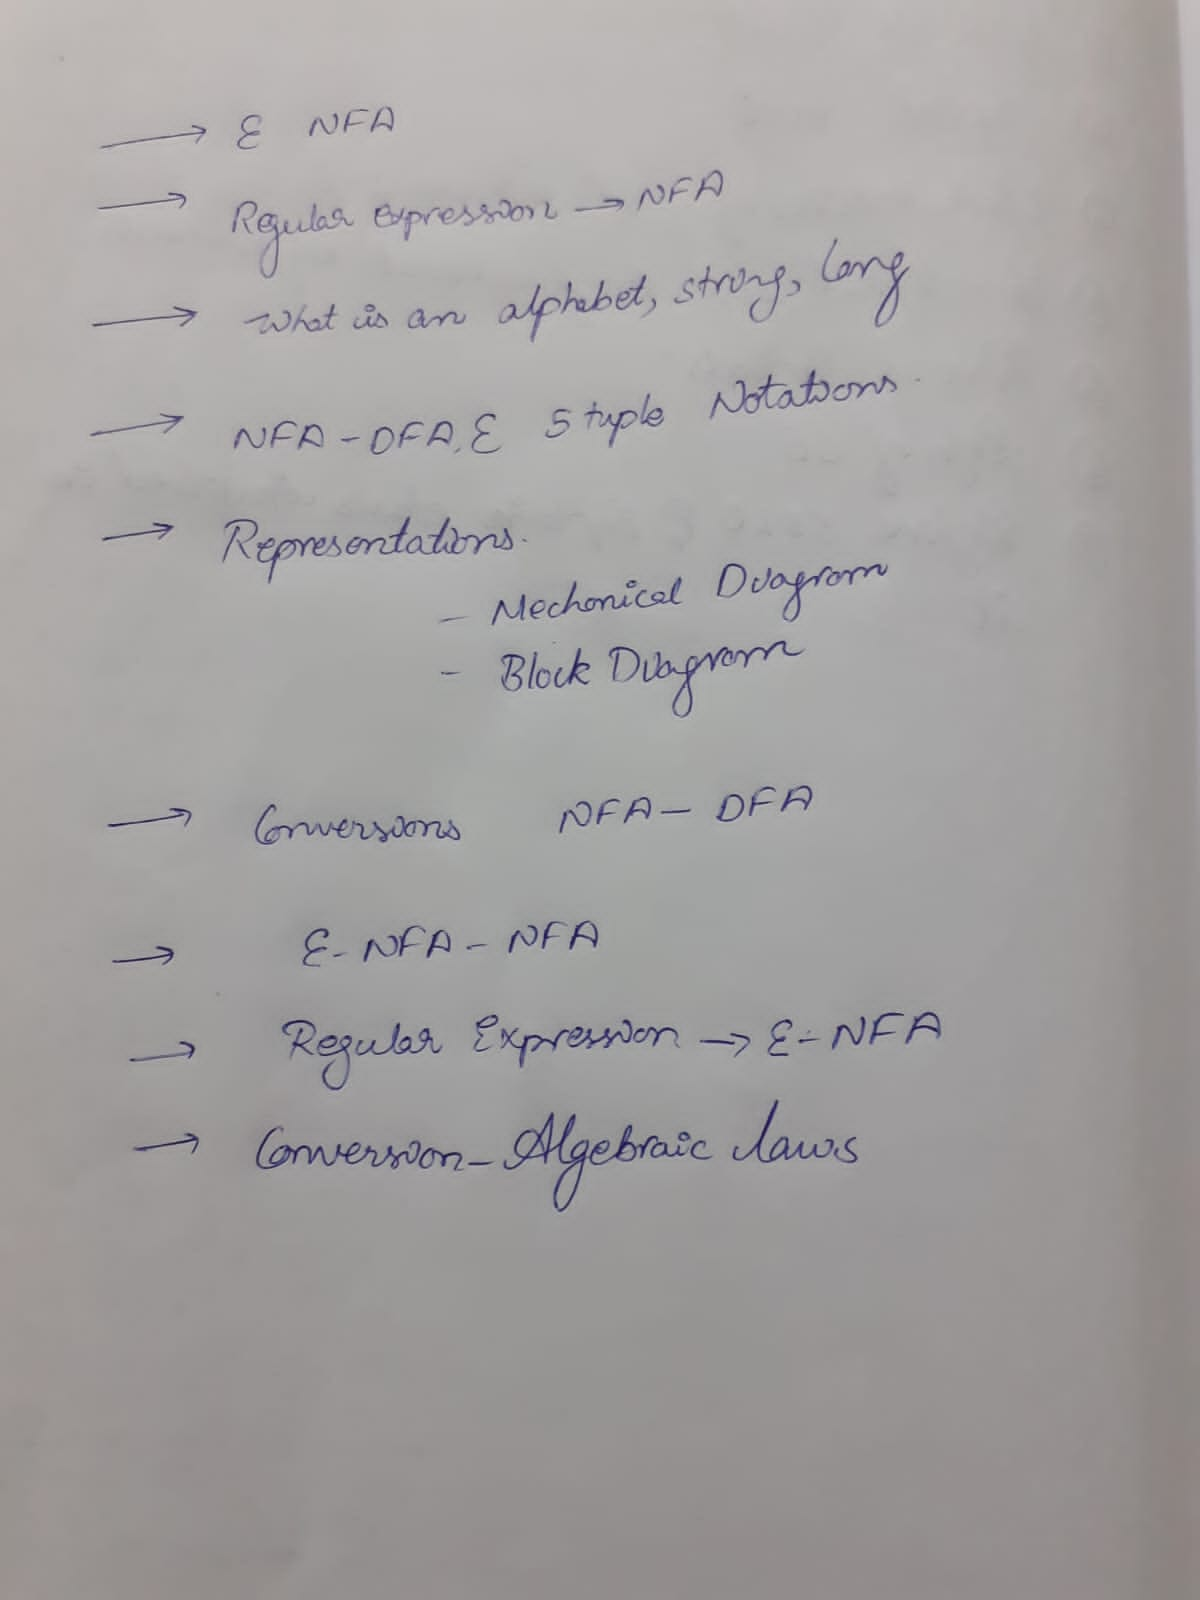 → ε NFA
→ Regular expression → NFA
→ What is an alphabet, string, Lang
→ NFA - DFA, ε 5 tuple Notations.
→ Representations.
- Mechanical Diagram
- Block Diagram
→ Conversions NFA - DFA
→ ε - NFA - NFA
→ Regular Expression → ε - NFA
→ Conversion - Algebraic laws